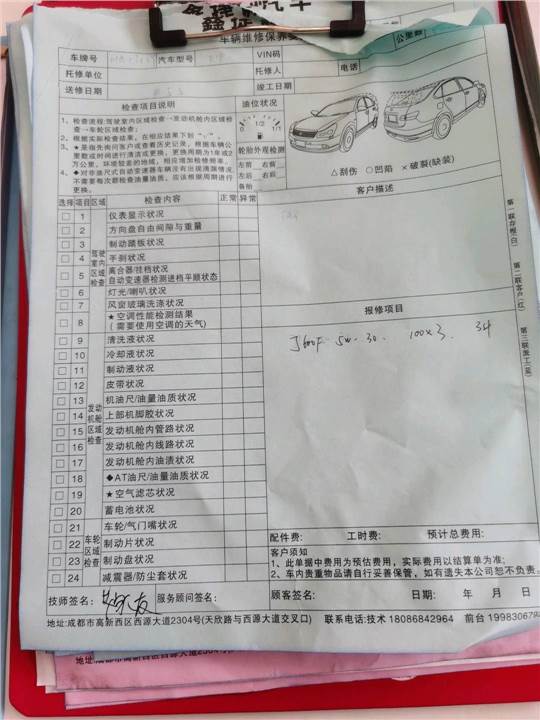 车辆维修保养
公里数
车牌号 汽车型号 VIN码
托修单位 托修人 电话
送修日期 竣工日期
检查项目说明 油位状况
1、检查流程:驾驶室内区域检查→发动机舱内区域检查→车轮区域检查;
2、根据实际检查结果，在相应结果下划“√”。
3、★是指先询问客户或查看历史记录，根据车辆公里数或时间进行清洁或更换，更换周期为1年或2万公里，环境较差的地域，相应增加检修频率。
4、◆对非油尺式自动变速器车辆没有出现泄漏情况不需要每次都检查油量油质，应该根据周期进行更换。
0 1/2 1/1
轮胎外观检测
左前 右前
左后 右后
备胎
△刮伤 ○凹陷 ×破裂(缺装)
选择 项目 区域 检查内容 正常 异常 客户描述
驾驶室内区域检查
1 仪表显示状况
2 方向盘自由间隙与重量
3 制动踏板状况
4 手刹状况
5 离合器/挂档状况
自动变速器检测进档平顺状态
6 灯光/喇叭状况
7 风窗玻璃洗涤状况
8 ★空调性能检测结果
(需要使用空调的天气)
发动机舱区域检查
9 清洗液状况
10 冷却液状况
11 制动液状况
12 皮带状况
13 机油尺/油量油质状况
14 上部机脚胶状况
15 发动机舱内管路状况
16 发动机舱内线路状况
17 发动机舱内油渍状况
18 ◆AT油尺/油量油质状况
19 ★空气滤芯状况
20 蓄电池状况
车轮区域检查
21 车轮/气门嘴状况
22 制动片状况
23 制动盘状况
24 减震器/防尘套状况
报修项目
J600F 5W-30 100×3 34
第一联存根(白)
第二联客户(红)
第三联派工(蓝)
配件费: 工时费: 预计总费用:
客户须知
1、此单据中费用为预估费用，实际费用以结算单为准;
2、车内贵重物品请自行妥善保管，如有遗失本公司恕不负责。
技师签名: 服务顾问签名: 顾客签名: 日期: 年 月 日
地址:成都市高新西区西源大道2304号(天欣路与西源大道交叉口) 联系电话:技术 18086842964 前台 199830679
地址:成都市高新西区西源大道2304号